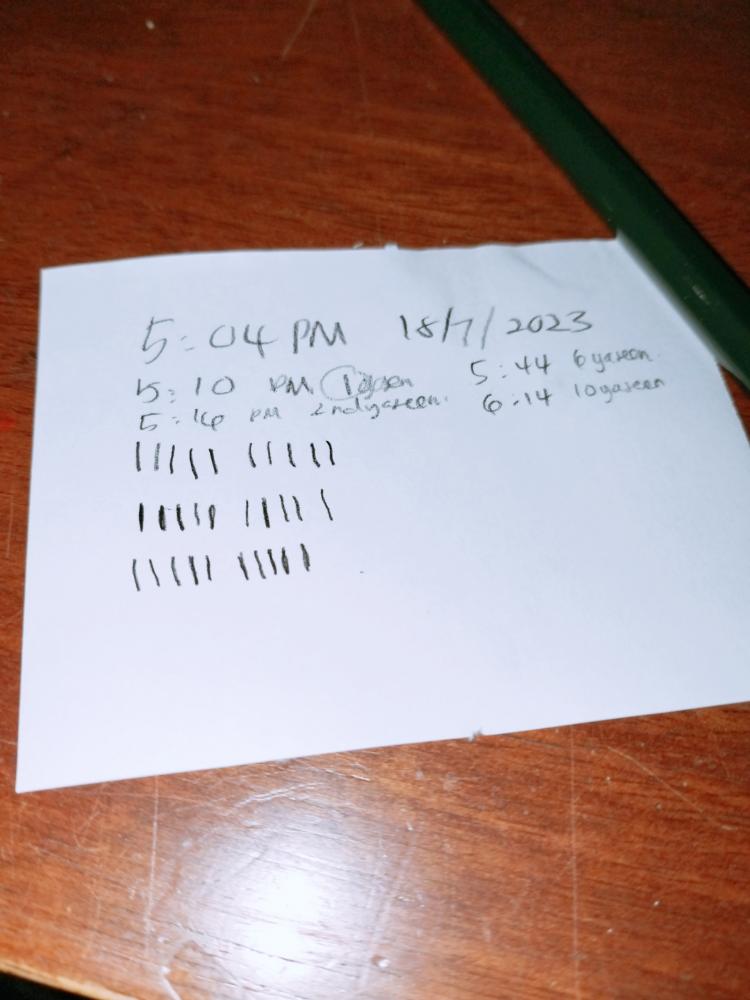 5:04 PM 18/7/2023
5:10 PM 1 yaseen 5:44 6 yaseen
5:16 PM 2nd yaseen. 6:14 10 yaseen
||||| |||||
||||| |||||
||||| |||||